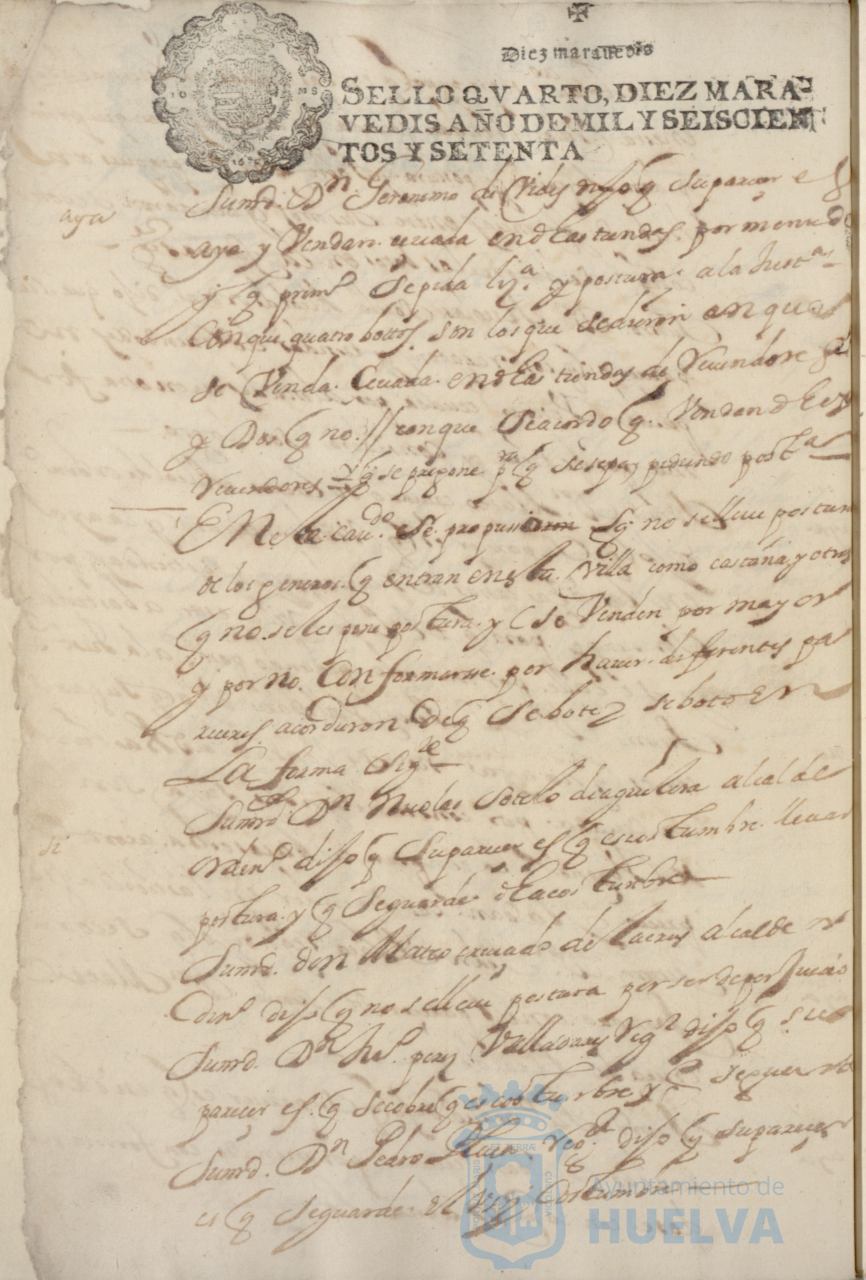 Diez marauedis
SELLO QVARTO, DIEZ MARA
VEDIS AÑO DE MIL Y SEISCIEN
TOS Y SETENTA
Sumrd. Dn Geronimo de dijo q su parecer e q
aya
aya y Vendan ceuada en las tiendas por menudo
y q prim.o se pida liz.a y postura a la Just.a
Conque quatro botos son los que se dieron en que
se Venda Ceuada en las tiendas de Reuendores
y Dos q no // conque se acordo q Vendan
Reuendores y q se pregone p.a q se sepa pidiendo post.a
En este cau.do se propusieron q no se lleue postura
de los generos q entran en esta Villa como castaña y otros
q no se les pone postura y se Venden por mayor
y por no Conformarse por hauer diferentes pa
receres acordaron de q se bote y se boto en
La forma sig.te
Sumrd. Dn Nicolas Sotelo de aguilera alcalde
si
orden.o dijo q su parecer es q es costumbre lleuar
postura y q se guarde la costumbre
Sumrd. don Mateo de la cruz alcalde or
din.o dijo q no se lleue postura por ser de perjuicio
Sumrd. Dn perez Valladares Reg.r dijo q su
parecer es q se cobre q es costumbre y
Sumrd. Dn Pedro Reg.r dijo q su parecer
es q se guarde el Uso y Costumbre
Ayuntamiento de
HUELVA